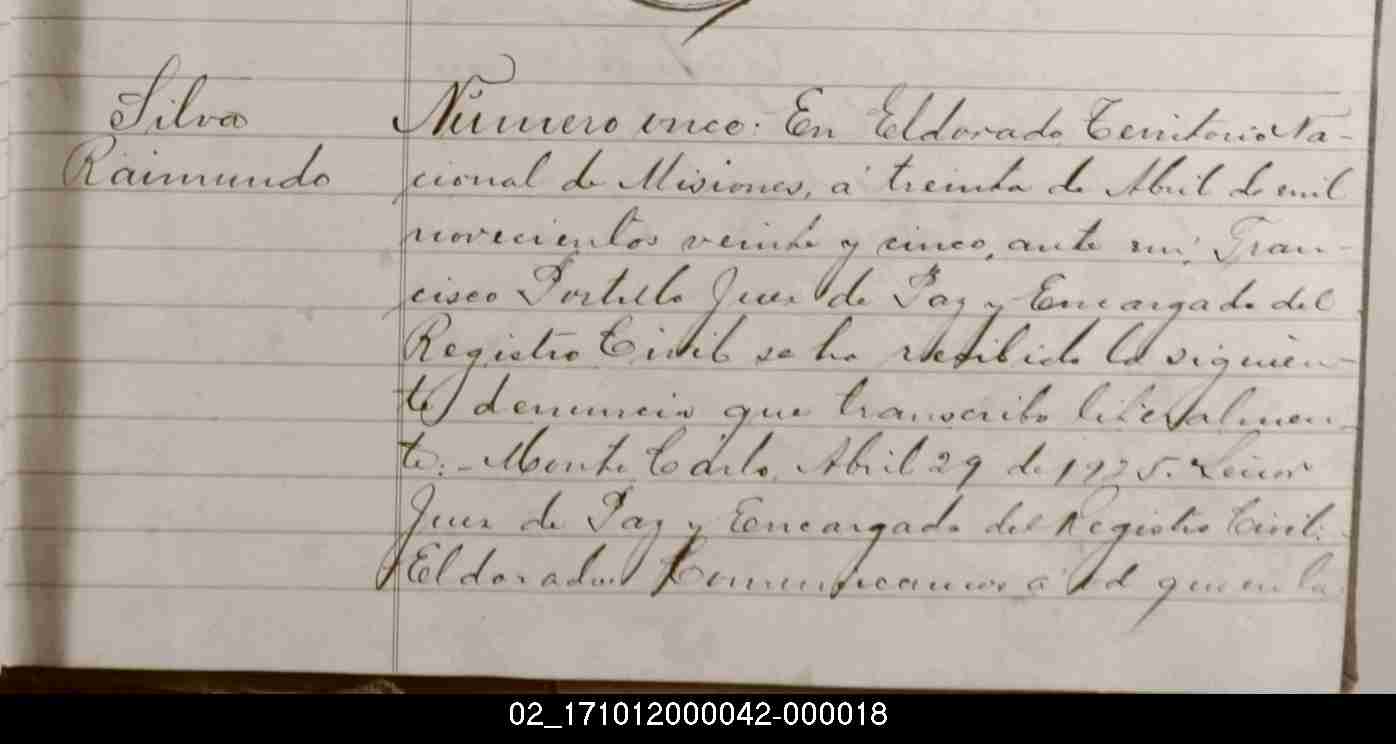 Silva
Raimundo
Número once: En Eldorado Territorio Na-
cional de Misiones, á treinta de Abril de mil
novecientos veinte y cinco, ante mi, Fran-
cisco Portillo Juez de Paz y Encargado del
Registro Civil se ha recibido la siguien-
te denuncia que transcribo literalmen-
te:- Monte Carlo, Abril 29 de 1925. Señor
Juez de Paz y Encargado del Registro Civil:
Eldorado. Comunicamos á Ud que en la
02_171012000042-000018